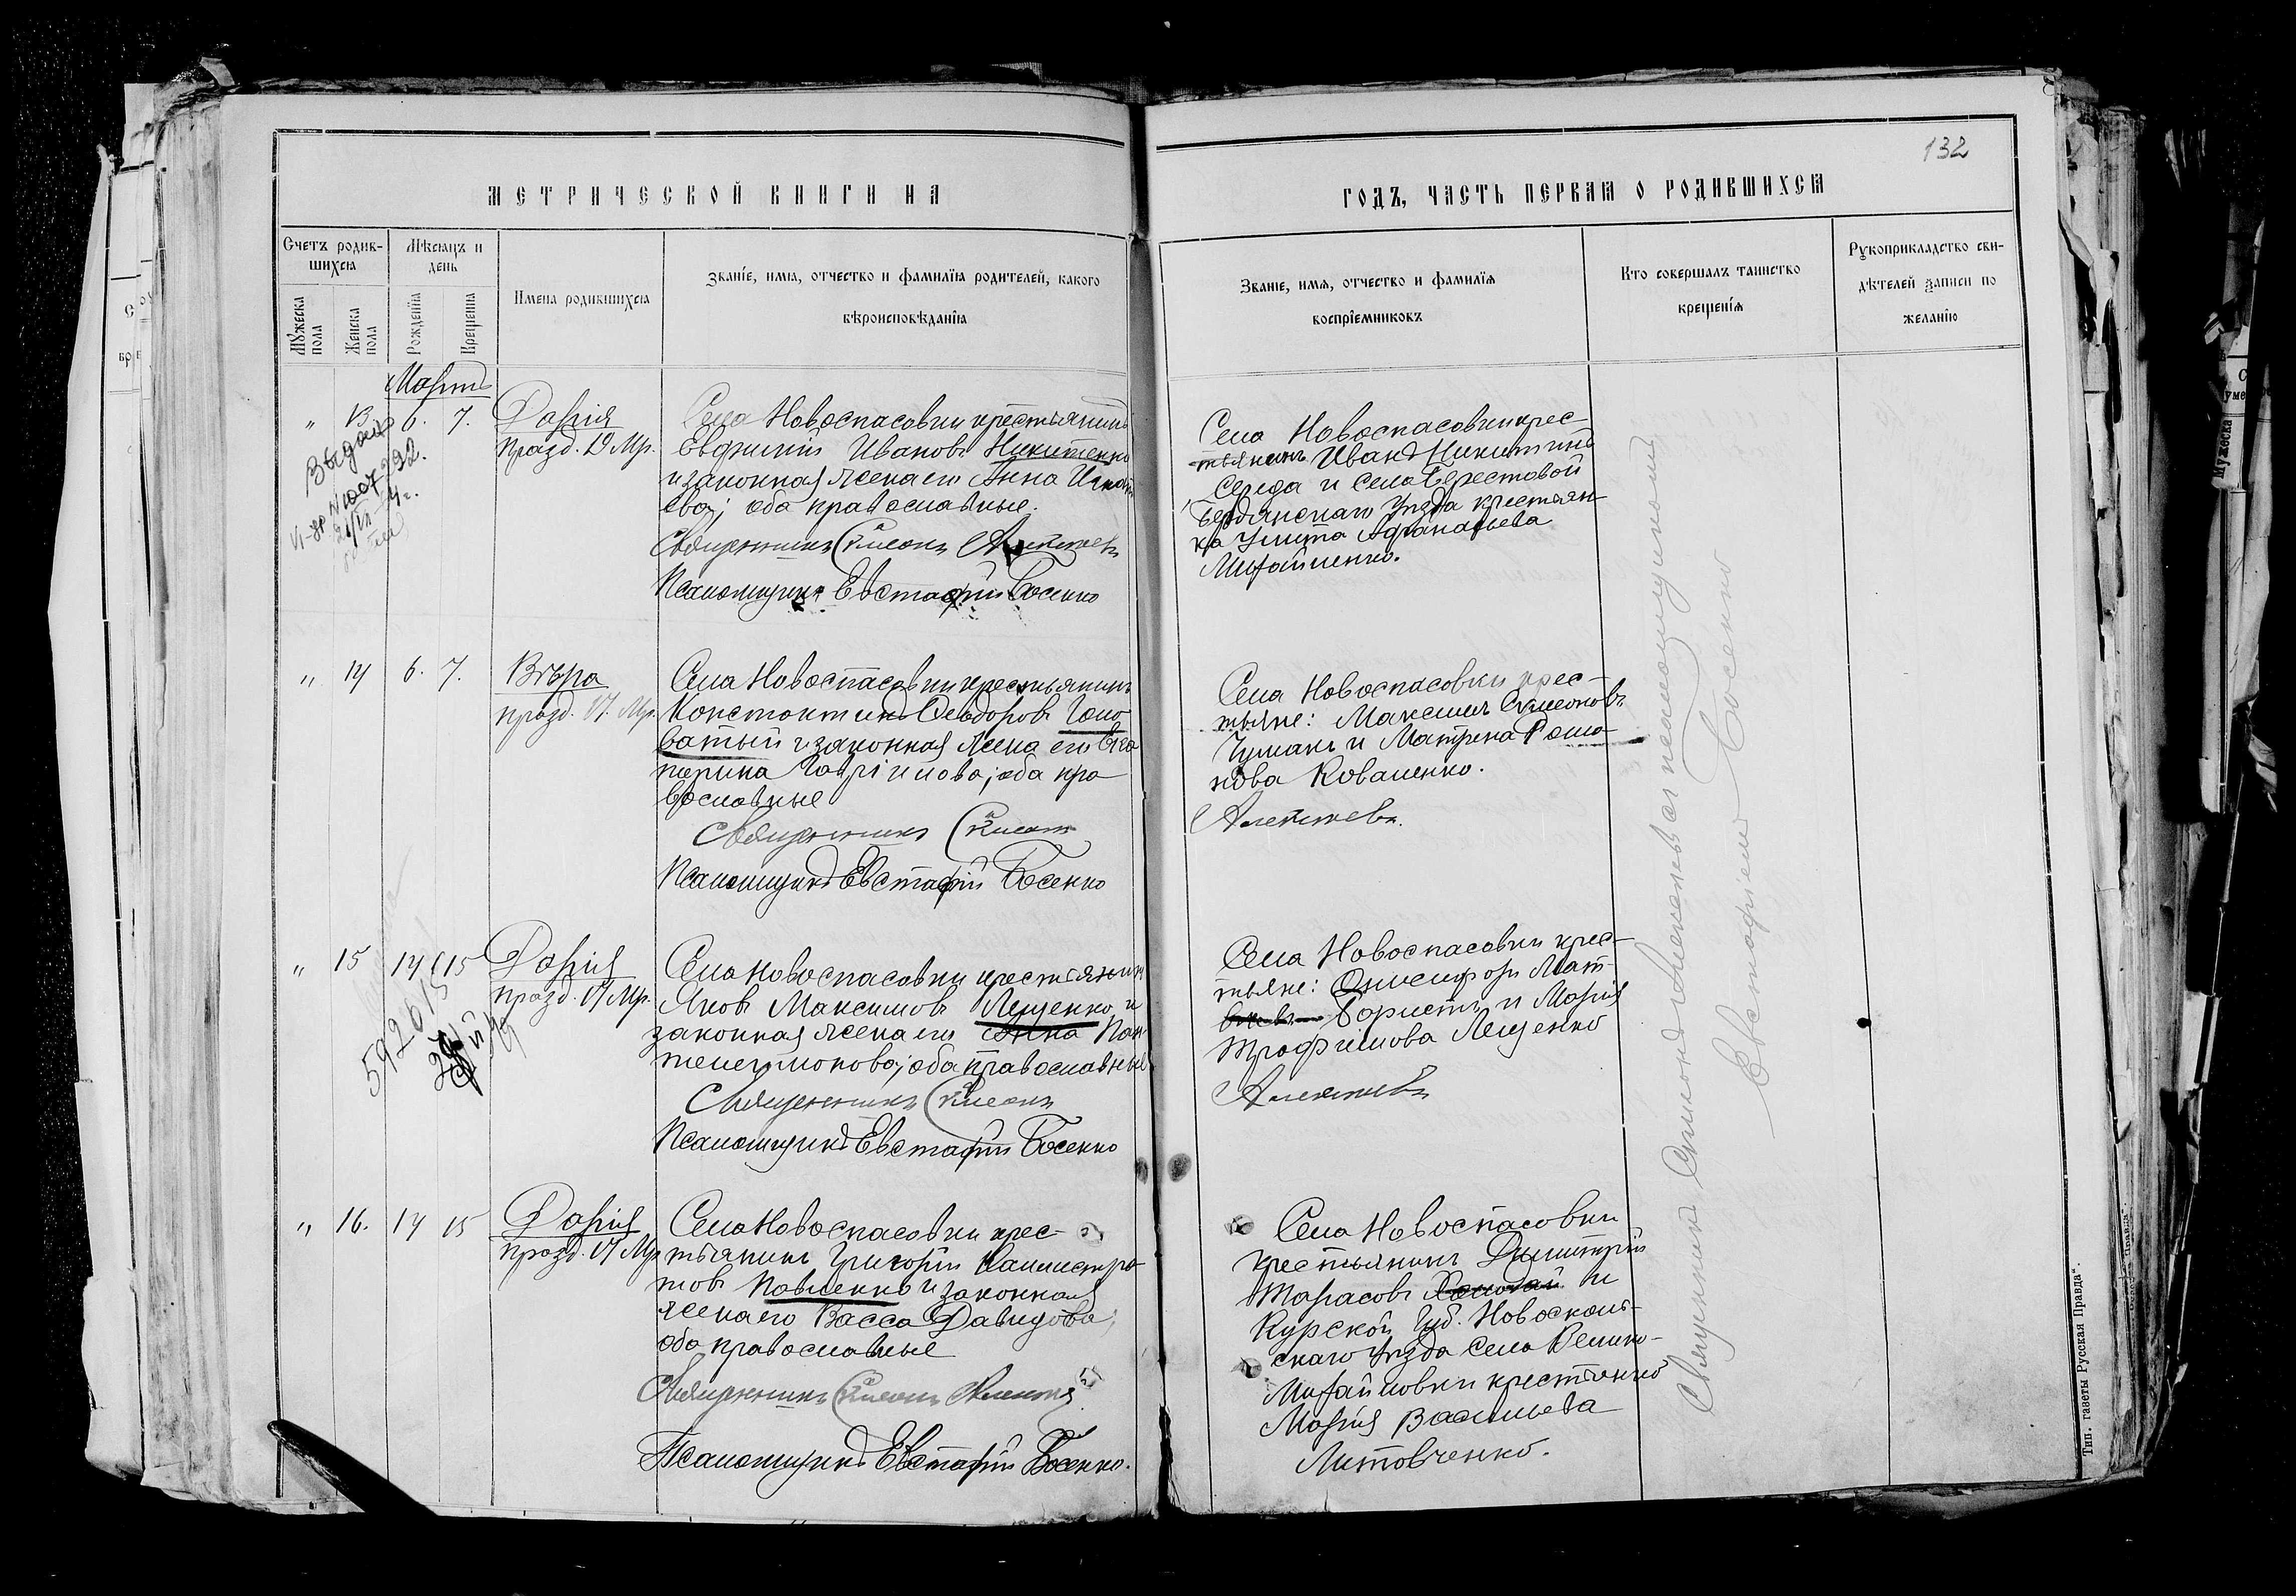 132
МЕТРИЧЕСКОЙ КНИГИ НА
ГОДЪ, ЧАСТЬ ПЕРВАЯ О РОДИВШИХСЯ
Счетъ родив-
шихся
Мѣсяцъ и
день
Мужеска
пола
Женска
пола
Рожденїя
Крещенїя
Имена родившихся
Званїе, имя, отчество и фамилїя родителей, какого
вѣроисповѣданїя
Званїе, имя, отчество и фамилїя
воспрїемниковъ
Кто совершалъ таинство
крещенїя
Рукоприкладство сви-
дѣтелей записи по
желанїю
Мартъ
" 13 6. 7. Дарія
празд. 19 Мр.
Села Новоспасовки крестьянинъ
Евфимій Ивановъ Никитенко
и законная жена его Анна
ева; оба православные.
Священникъ Симеонъ Алексѣевъ
Псаломщикъ Евстафій Босенко
Села Новоспасовки крес-
тьянинъ Иванъ Никитинъ
Середа и села Берестовой
Бердянскаго Уѣзда крестьян-
ка Улита Афанасьева
Михайленко.
" 14 6. 7. Вѣра
празд. 17. Мр.
Села Новоспасовки крестьянинъ
Константинъ Ѳеодоровъ Голо-
ватый и законная жена его Ека
терина Гавріилова; оба пра
вославные
Священникъ Симеонъ
Псаломщикъ Евстафій Босенко
Села Новоспасовки крес-
тьяне: Максимъ Симеоновъ
Чумакъ и Матрена Рома-
нова Коваленко.
Алексѣевъ.
" 15 14 15 Дарія
празд. 19 Мр.
Села Новоспасовки крестьянинъ
Яковъ Максимовъ Лещенко и
законная жена его Анна Пан
телеимонова; оба православные
Священникъ Симеонъ
Псаломщикъ Евстафій Босенко
592615
Села Новоспасовки крес-
тьяне: Онисифоръ Мат-
вѣевъ и Марія
Трофимова Лещенко
Алексѣевъ
" 16. 14 15 Дарія
празд. 19 Мр.
Села Новоспасовки крес-
тьянинъ Григорій Каллистра-
товъ Павленко и законная
жена его Васса Давидова;
оба православные
Священникъ Симеонъ Алексѣевъ
Псаломщикъ Евстафій Босенко.
Села Новоспасовки
крестьянинъ Димитрій
Тарасовъ Холодай и
Курской Губ. Новосколь-
скаго Уѣзда села Велико-
Михайловки крестьянка
Марія Васильева
Литовченко.
Священникъ Симеонъ Алексѣевъ съ псаломщикомъ
Евстафіемъ Босенко
Тип. газеты Русская Правда".